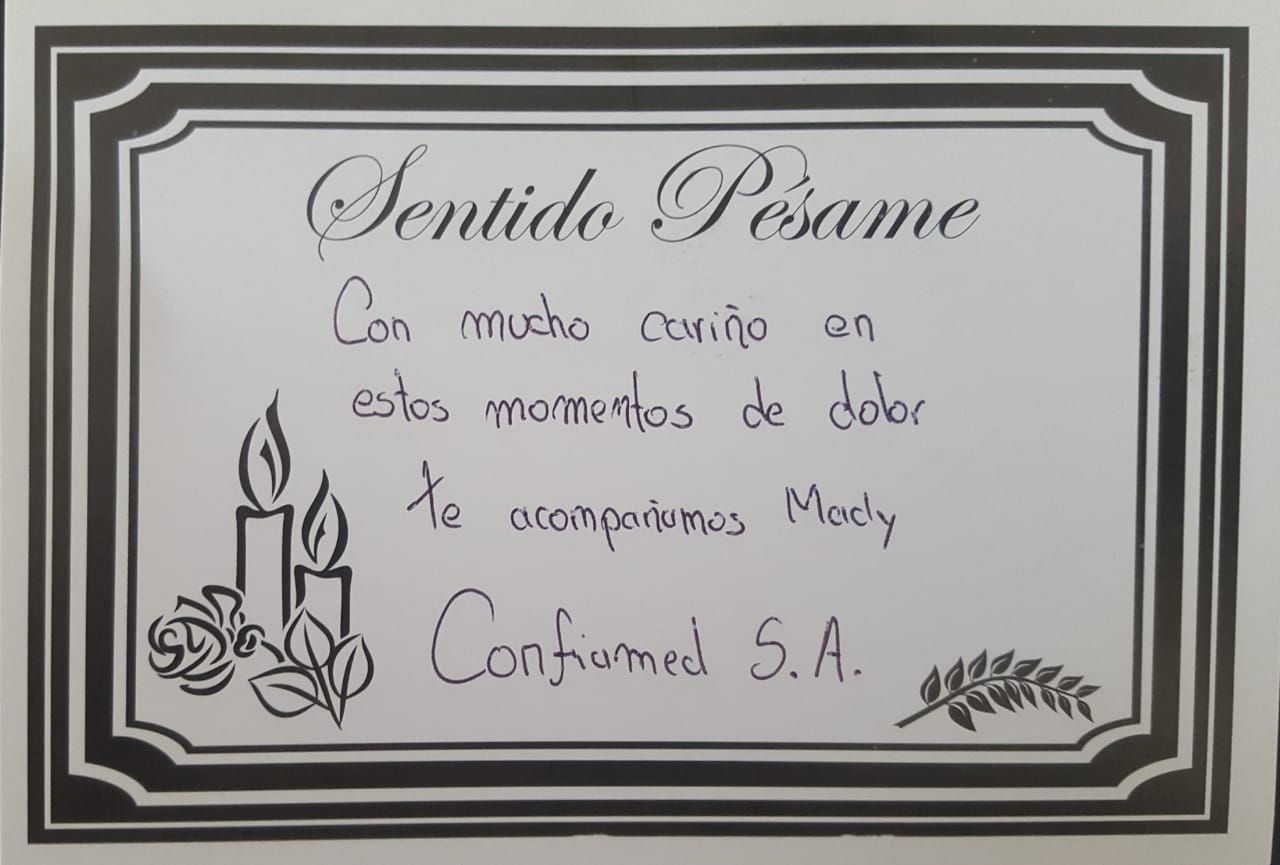 Sentido Pésame
Con mucho cariño en
estos momentos de dolor
te acompañamos Mady
Confiamed S.A.